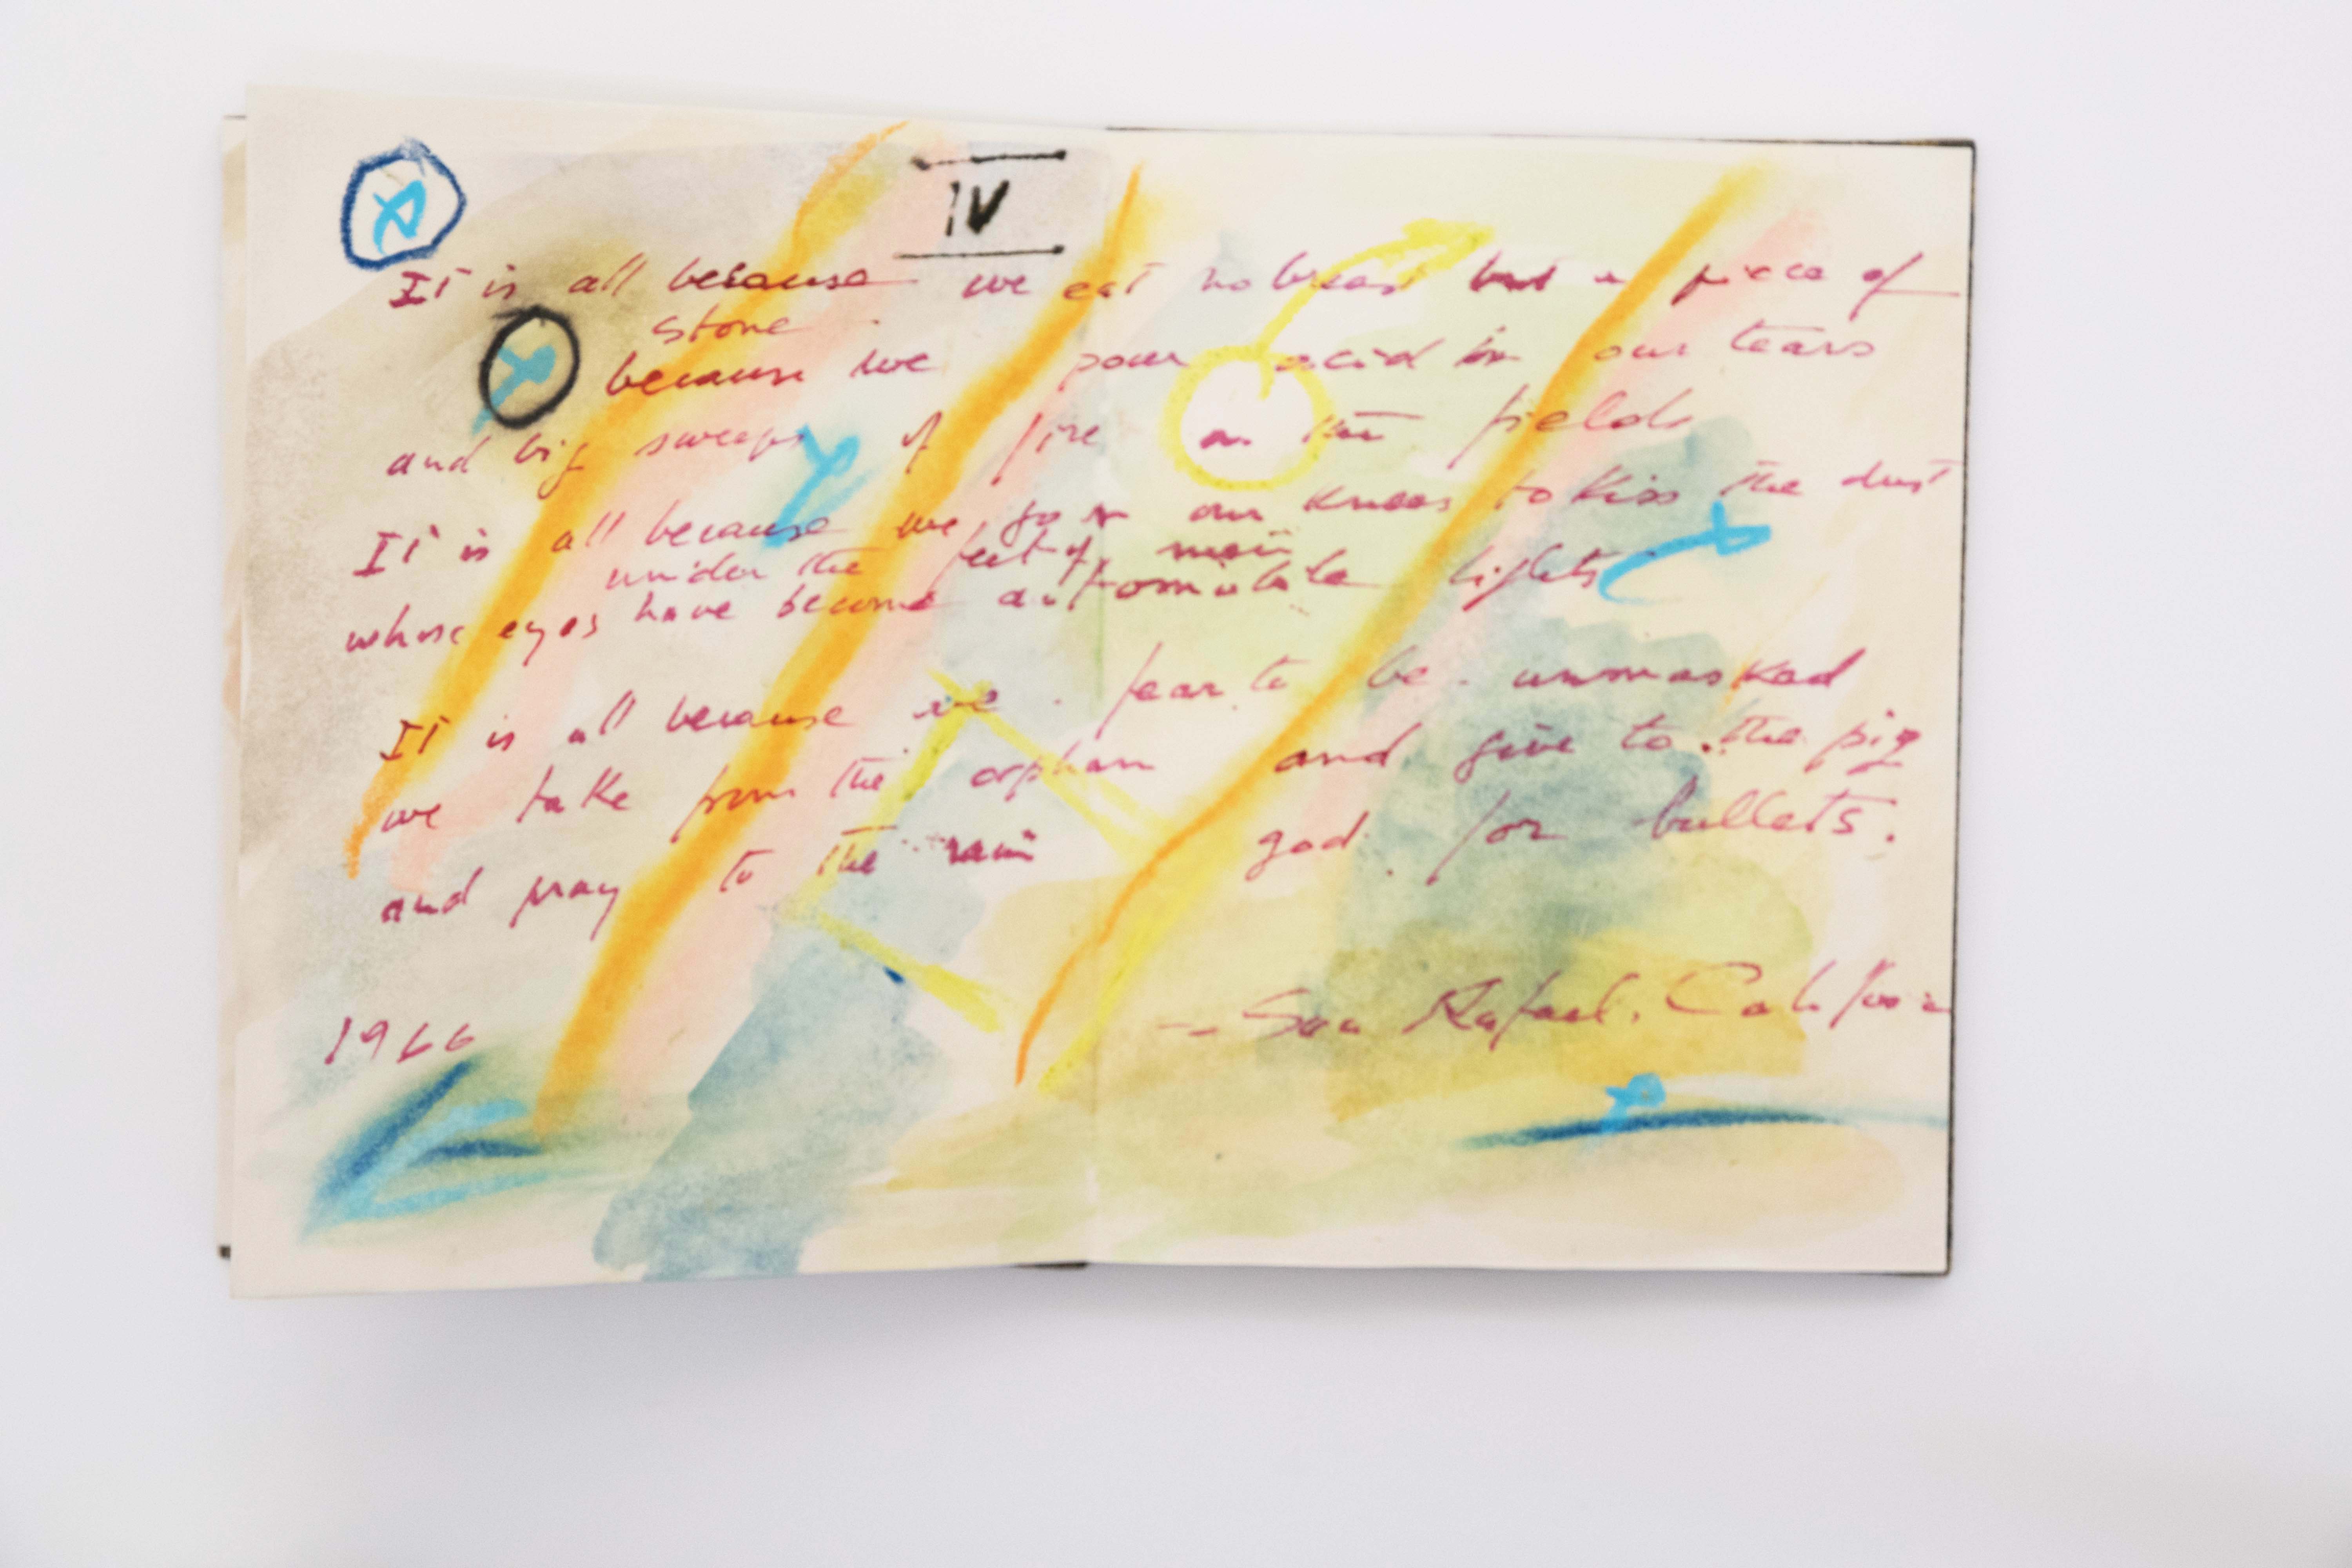 IV
It is all because we eat no bread but a piece of
stone
because we pour acid in our tears
and big sweeps of fire on the fields
It is all because we go on our knees to kiss the dust
under the feet of men
whose eyes have become automobile lights
It is all because we fear to be unmasked
we take from the orphan and give to the pig
and pray to the rain god for bullets.
1966 — San Rafael, California